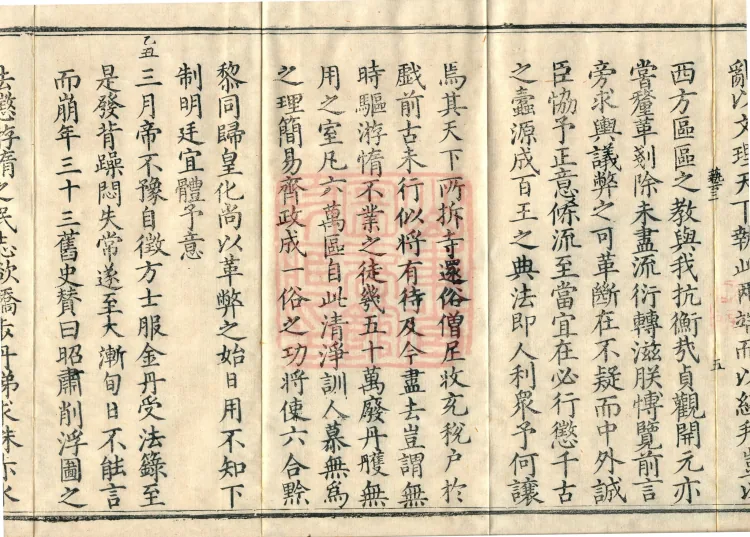 亂以文理天下執此兩端而以經邦豈以
西方區區之教與我抗衡㢤貞觀開元亦
甞釐革剗除未盡流衍轉滋朕博覽前言
旁求輿議弊之可革斷在不疑而中外誠
臣恊予正意條流至當宜在必行懲千古
之蠹源成百王之典法即人利衆予何讓
焉其天下所拆寺還俗僧尼收充稅户於
戲前古未行似將有待及今盡去豈謂無
時驅游惰不業之徒幾五十萬廢丹雘無
用之室凡六萬區自此清淨訓人慕無爲
之理簡易齊政成一俗之功將使六合黔
黎同歸皇化尚以革弊之始日用不知下
制明廷宜體予意
乙丑
三月帝不豫自徵方士服金丹受法籙至
是發背躁悶失常遂至大漸旬日不能言
而崩年三十三舊史賛曰昭肅削浮圖之
法懲游惰之民志欲矯步丹梯求珠赤水
五